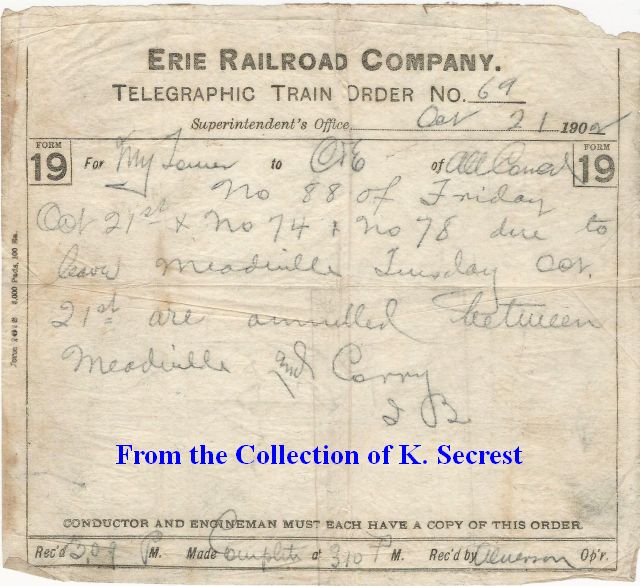 ERIE RAILROAD COMPANY.
TELEGRAPHIC TRAIN ORDER NO. 69
Superintendent's Office Oct 21 1902
FORM 19 For My Tower to C&E of All Concd FORM 19
No 88 of Friday
Oct 21st & No 74 & No 78 due to
leave Meadville Tuesday Oct.
21st are annulled between
Meadville and Corry
B
From the Collection of K. Secrest
CONDUCTOR AND ENGINEMAN MUST EACH HAVE A COPY OF THIS ORDER.
Rec'd P M. Made Complete at 310 P M. Rec'd by Op'r.